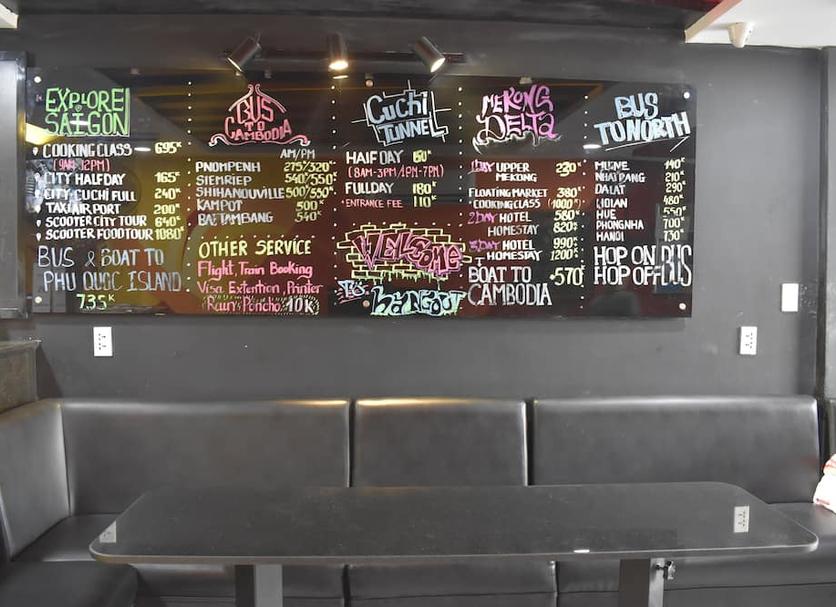 EXPLORE
SAIGON
COOKING CLASS 695K
(9AM-12PM)
CITY HALFDAY 165K
CITY-CUCHI FULL 240K
TAXI AIRPORT 200K
SCOOTER CITY TOUR 640K
SCOOTER FOOD TOUR 1080K
BUS & BOAT TO
PHU QUOC ISLAND
735K
BUS
TO
CAMBODIA
AM/PM
PNOMPENH 275/320K
SIEMRIEP 540/550K
SHIHANOUVILLE 500/550K
KAMPOT 500K
BATTAMBANG 540K
OTHER SERVICE
Flight, Train Booking
Visa Extention, Printer
Rain Poncho 10K
CuChi
TUNNEL
HALF DAY
(8AM-3PM/1PM-7PM)
FULLDAY 180K
ENTRANCE FEE 110K
WELCOME
To
HANGOUT
MEKONG
DELTA
1DAY UPPER 230K
MEKONG
FLOATING MARKET 380K
COOKING CLASS (1000K)
2DAY HOTEL 580K
HOMESTAY 820K
3DAY HOTEL 990K
HOMESTAY 1200K
BOAT TO 570K
CAMBODIA
BUS
TO NORTH
MUINE 140K
NHATRANG 210K
DALAT 290K
HOIAN 480K
HUE 550K
PHONGNHA 700K
HANOI 730K
HOP ON BUS
HOP OFF